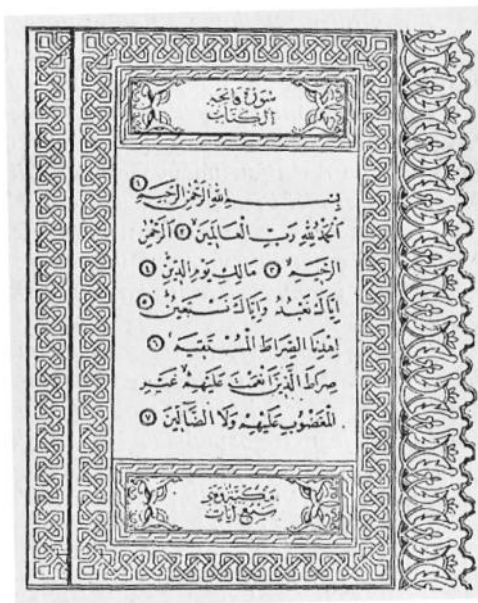 سورة فاتحة
الكتاب
بسم الله الرحمن الرحيم ١
الحمد لله رب العالمين ٢ الرحمن
الرحيم ٣ مالك يوم الدين ٤
اياك نعبد واياك نستعين ٥
اهدنا الصراط المستقيم ٦
صراط الذين انعمت عليهم غير
المغضوب عليهم ولا الضالين ٧
مكية وهي
سبع آيات